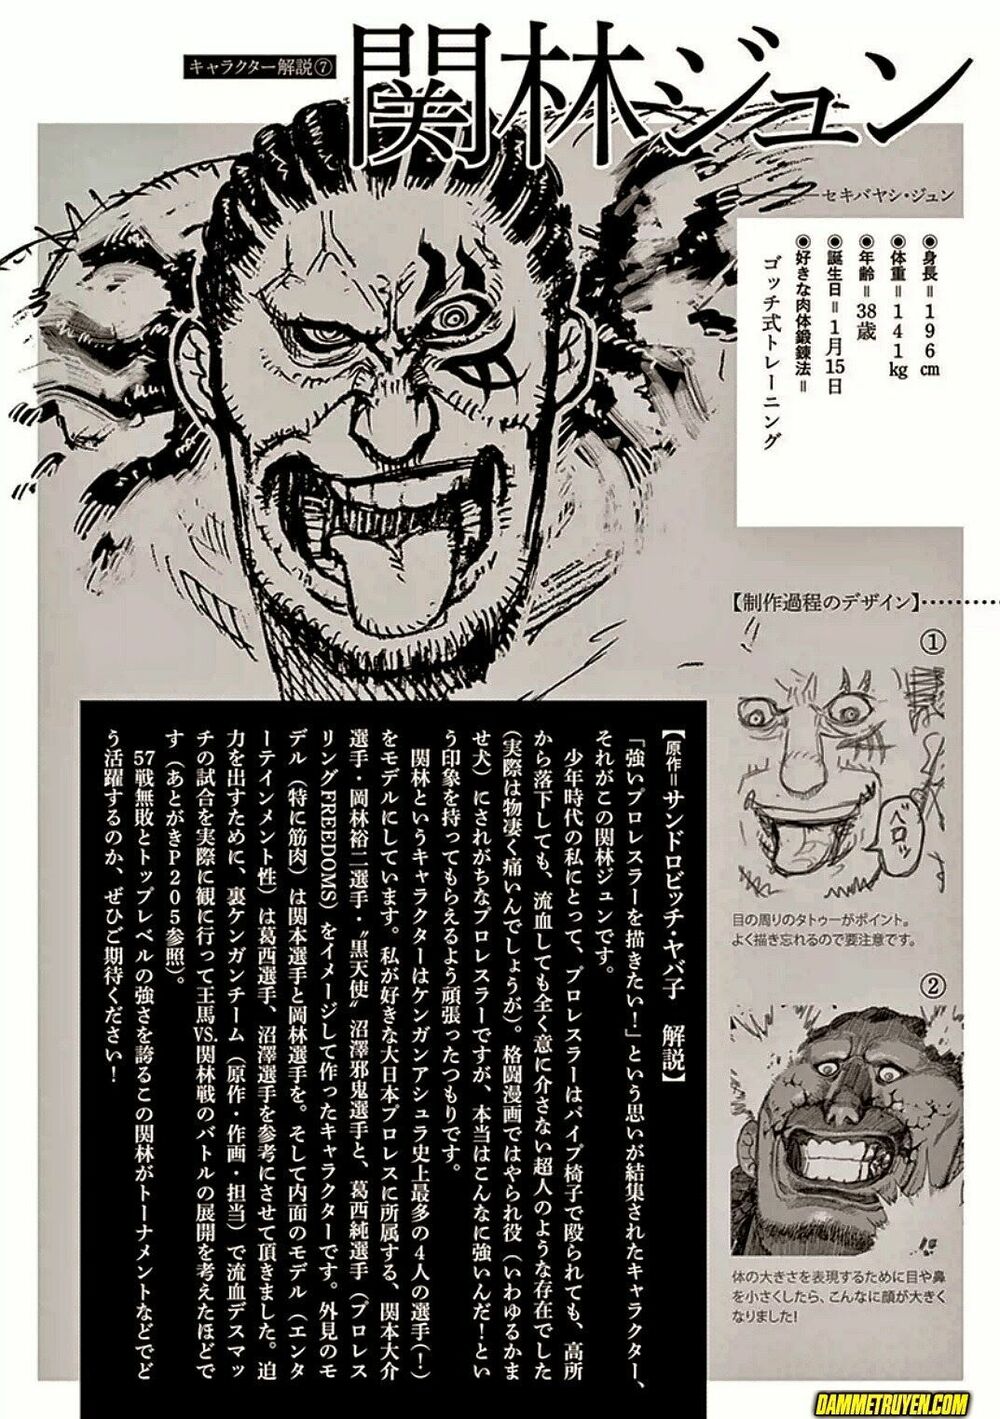 キャラクター解説⑦
関林ジュン
セキバヤシ・ジュン
◉身長＝196cm
◉体重＝141kg
◉年齢＝38歳
◉誕生日＝1月15日
◉好きな肉体鍛錬法＝
ゴッチ式トレーニング
【制作過程のデザイン】
①
ベロッ
目の周りのタトゥーがポイント。
よく描き忘れるので要注意です。
②
体の大きさを表現するために目や鼻
を小さくしたら、こんなに顔が大きく
なりました!
【原作＝サンドロビッチ・ヤバ子　解説】
「強いプロレスラーを描きたい！」という思いが結集されたキャラクター、
それがこの関林ジュンです。
少年時代の私にとって、プロレスラーはパイプ椅子で殴られても、高所
から落下しても、流血しても全く意に介さない超人のような存在でした
（実際は物凄く痛いんでしょうが）。格闘漫画ではやられ役（いわゆるかま
せ犬）にされがちなプロレスラーですが、本当はこんなに強いんだ！とい
う印象を持ってもらえるよう頑張ったつもりです。
関林というキャラクターはケンガンアシュラ史上最多の4人の選手（！）
をモデルにしています。私が好きな大日本プロレスに所属する、関本大介
選手・岡林裕二選手・〝黒天使〟沼澤邪鬼選手と、葛西純選手（プロレス
リングFREEDOMS）をイメージして作ったキャラクターです。外見のモ
デル（特に筋肉）は関本選手と岡林選手を。そして内面のモデル（エンタ
ーテインメント性）は葛西選手、沼澤選手を参考にさせて頂きました。迫
力を出すために、裏ケンガンチーム（原作・作画・担当）で流血デスマッ
チの試合を実際に観に行って王馬VS.関林戦のバトルの展開を考えたほどで
す（あとがきP205参照）。
57戦無敗とトップレベルの強さを誇るこの関林がトーナメントなどでど
う活躍するのか、ぜひご期待ください！
DAMMETRUYEN.COM